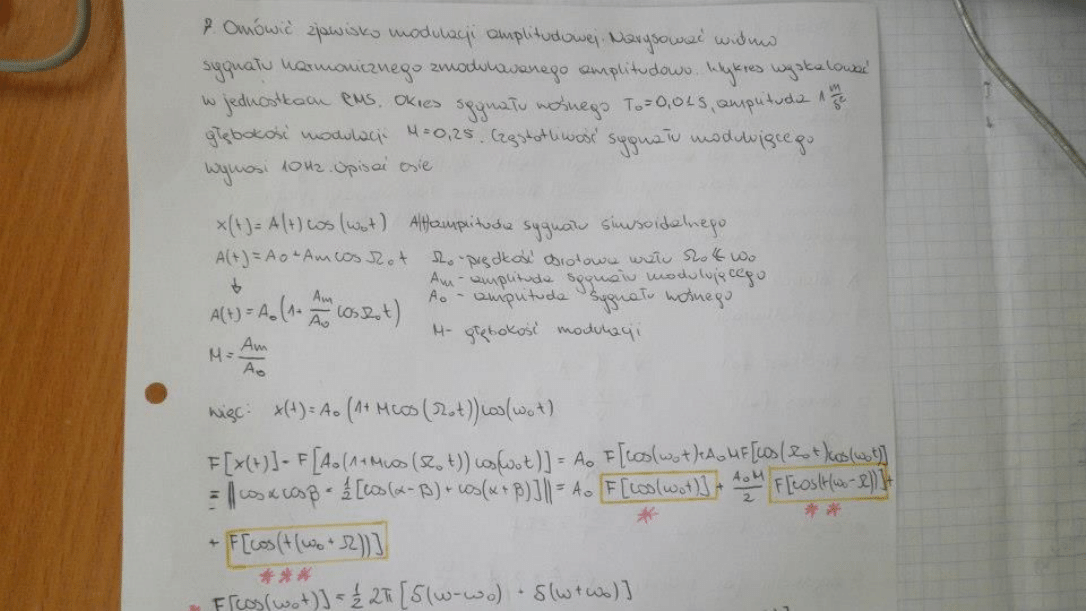 9. Omówić zjawisko modulacji amplitudowej. Narysować widmo
sygnału harmonicznego zmodulowanego amplitudowo. Wykres wyskalować
w jednostkach RMS. Okres sygnału nośnego T₀=0,01s, amplituda 1 m/s²
głębokość modulacji M=0,25. Częstotliwość sygnału modulującego
wynosi 10Hz. Opisać osie
x(t)=A(t)cos(ω₀t) A(t)-amplituda sygnału sinusoidalnego
A(t)=A₀+Am cos Ω₀t Ω₀-prędkość obrotowa wału Ω₀≪ω₀
Am-amplituda sygnału modulującego
A(t)=A₀(1+Am/A₀ cosΩ₀t) A₀ - amplituda sygnału nośnego
M- głębokość modulacji
M=Am/A₀
więc: x(t)=A₀(1+Mcos(Ω₀t))cos(ω₀t)
F[x(t)]=F[A₀(1+Mcos(Ω₀t))cos(ω₀t)]=A₀ F[cos(ω₀t)+A₀MF[cos(Ω₀t)cos(ω₀t)]
=‖cosαcosβ=½[cos(α-β)+cos(α+β)]‖=A₀ F[cos(ω₀t)]+A₀M/2 F[cos(t(ω₀-Ω))]+
* **
+ F[cos(t(ω₀+Ω))]
***
* F[cos(ω₀t)]=½2π[δ(ω-ω₀)+δ(ω+ω₀)]